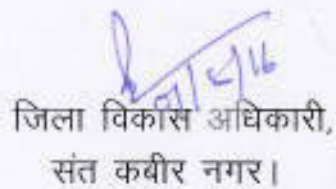 जिला विकास अधिकारी,
संत कबीर नगर।